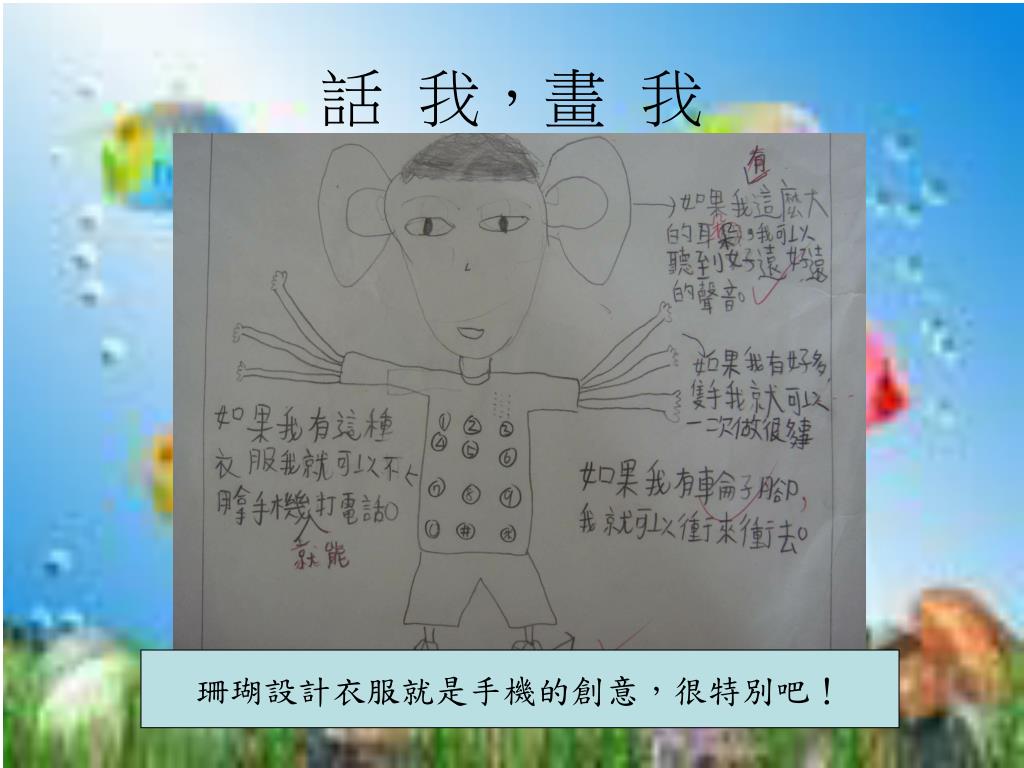 話 我，畫 我
有
如果我這麼大
的耳朵，我可以
聽到好遠好遠
的聲音。
如果我有好多
隻手我就可以
一次做很多事
如果我有這種
衣服我就可以不
用拿手機打電話。
就能
如果我有車輪子腳，
我就可以衝來衝去。
1 2 3
4 5 6
7 8 9
0 #
珊瑚設計衣服就是手機的創意，很特別吧！